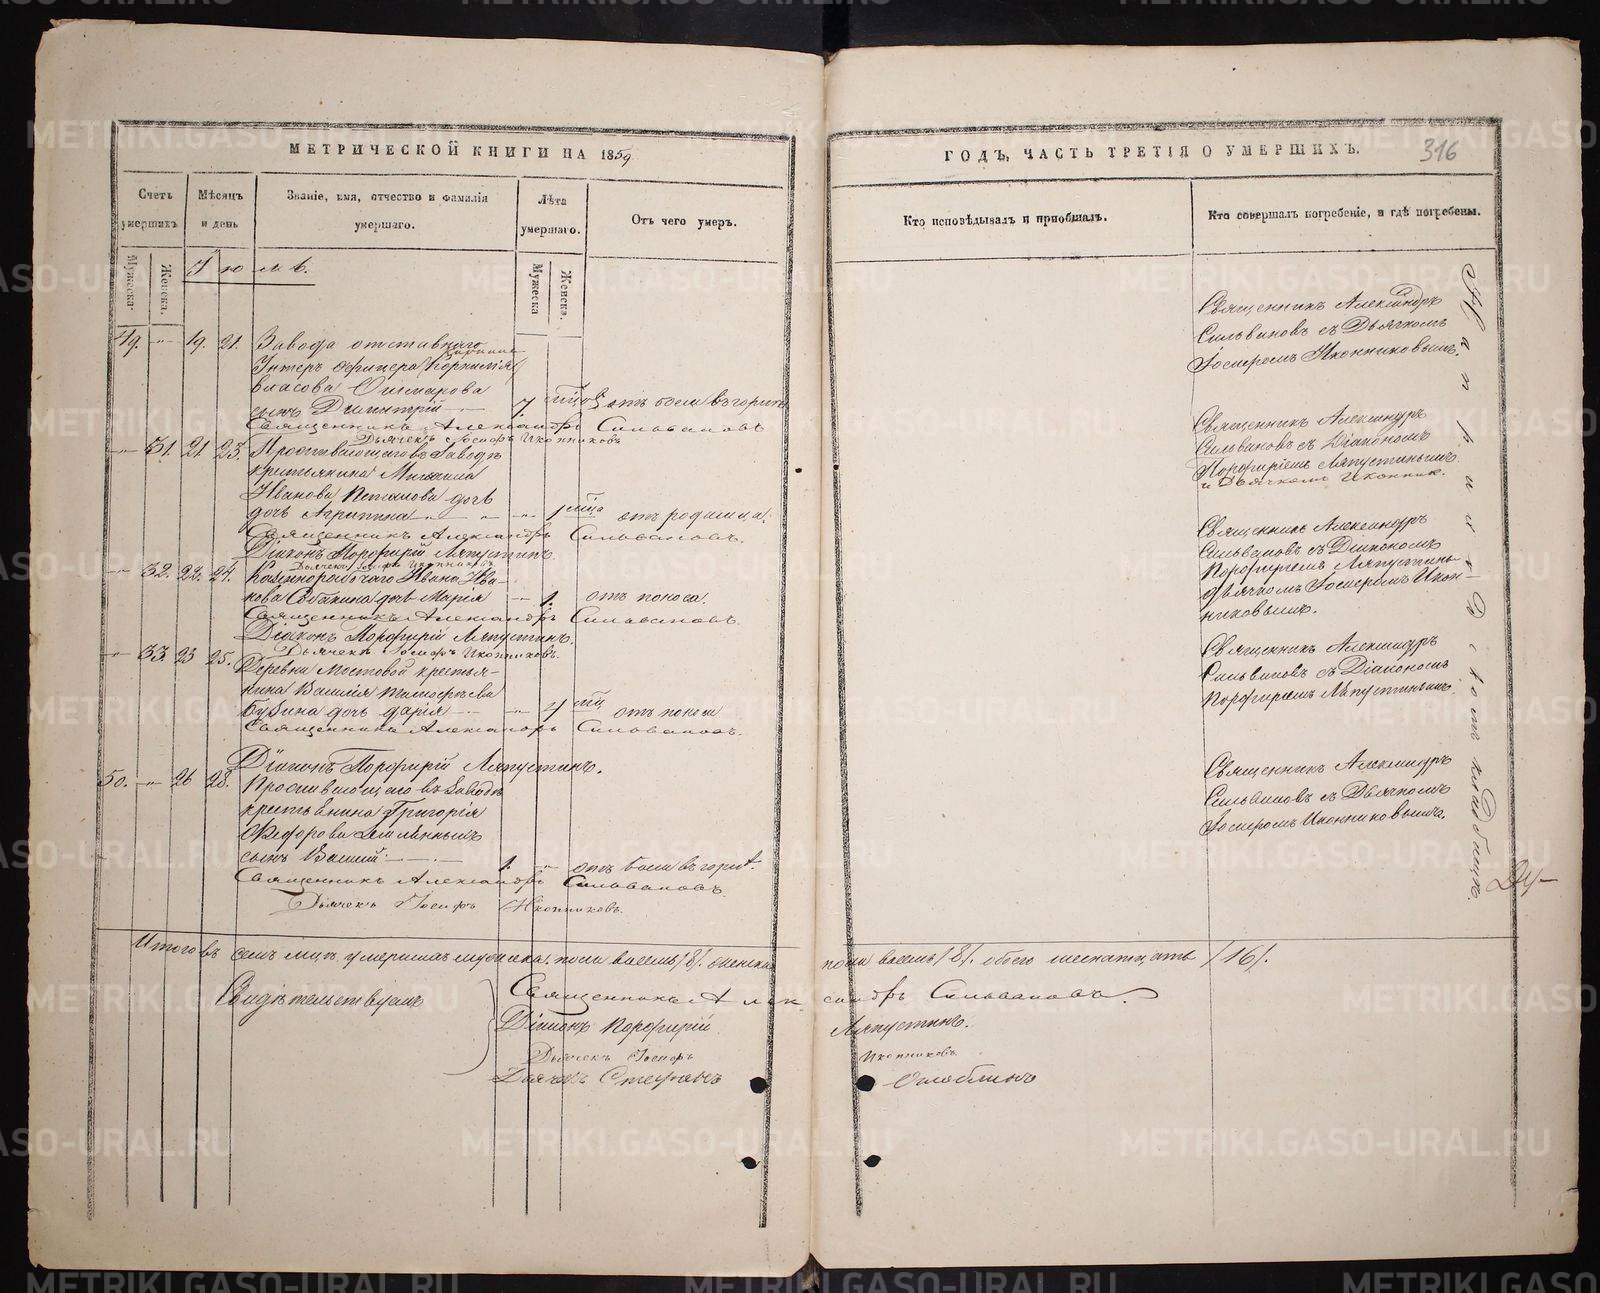 МЕТРИЧЕСКОЙ КНИГИ НА 1859
ГОДЪ, ЧАСТЬ ТРЕТІЯ О УМЕРШИХЪ.
316
Счетъ умершихъ
Мѣсяцъ и день
Званіе, имя, отчество и фамилія умершаго.
Лѣта умершаго.
Отъ чего умеръ.
Кто исповѣдывалъ и пріобщалъ.
Кто совершалъ погребеніе, и гдѣ погребены.
Мужеска.
Женска.
Мужеска
Женска.
Іюль.
49. 19. 21. Завода отставнаго
Унтеръ Офицера Корнилія
Власова
сынъ Димитрій 7. мцовъ отъ боли въ горлѣ
Священникъ Александръ Сильвановъ
Дьячекъ Іосифъ Иконниковъ
Священникъ Александръ
Сильвановъ съ Дьячкомъ
Іосифомъ Иконниковымъ.
31. 21. 23. Проживающаго въ Заводѣ
крестьянина Михаила
Иванова дочь
дочь Агрипина 1 мца отъ родимца.
Священникъ Александръ Сильвановъ.
Діаконъ Порфирій Ляпустинъ.
Дьячекъ Іосифъ Иконниковъ
Священникъ Александръ
Сильвановъ съ Діакономъ
Порфиріемъ Ляпустинымъ
и Дьячкомъ Иконник.
32. 22. 24. Ивана Ива-
нова Собакина дочь Марія 1. отъ поноса.
Священникъ Александръ Сильвановъ.
Діаконъ Порфирій Ляпустинъ.
Дьячекъ Іосифъ Иконниковъ.
Священникъ Александръ
Сильвановъ съ Діакономъ
Порфиріемъ Ляпустинымъ
дьячкомъ Іосифомъ Икон-
никовымъ.
33. 23 25. Деревни Мостовой крестья-
нина Василія Тимофѣева
Бубина дочь Дарія 4 мц отъ поноса
Священникъ Александръ Сильвановъ.
Діаконъ Порфирій Ляпустинъ.
Священникъ Александръ
Сильвановъ съ Діакономъ
Порфиріемъ Ляпустинымъ.
50. 26 28. Проживающаго въ Заводѣ
крестьянина Григорія
Федорова
сынъ Василій 1. отъ боли въ горлѣ.
Священникъ Александръ Сильвановъ.
Дьячекъ Іосифъ Иконниковъ.
Священникъ Александръ
Сильвановъ съ Дьячкомъ
Іосифомъ Иконниковымъ.
На приходскомъ кладбищѣ.
Итого въ семъ мцѣ умершихъ мужеска. пола восемь /8/. женска пола восемь /8/. обоего шеснатцать /16/.
Свидѣтельствуемъ
Священникъ Александръ Сильвановъ.
Діаконъ Порфирій Ляпустинъ.
Дьячекъ Іосифъ Иконниковъ.
Дьячекъ Стефанъ Оглоблинъ
METRIKI.GASO-URAL.RU